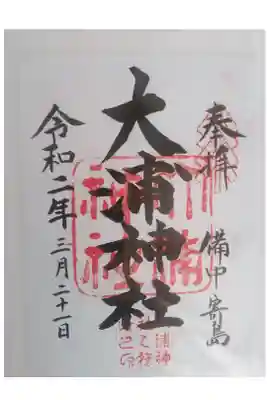 奉拝 備中寄島
大浦神社
令和二年 三月二十一日